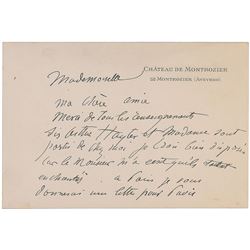 CHÂTEAU DE MONTROZIER
MONTROZIER (AVEYRON)
Mademoiselle
ma chère amie
Merci de tous les enseignements
Sir Arthur et Madame sont
partis de chez moi je
car le Monsieur m'a
enchantés. a Paris je vous
donnerai une lettre pour